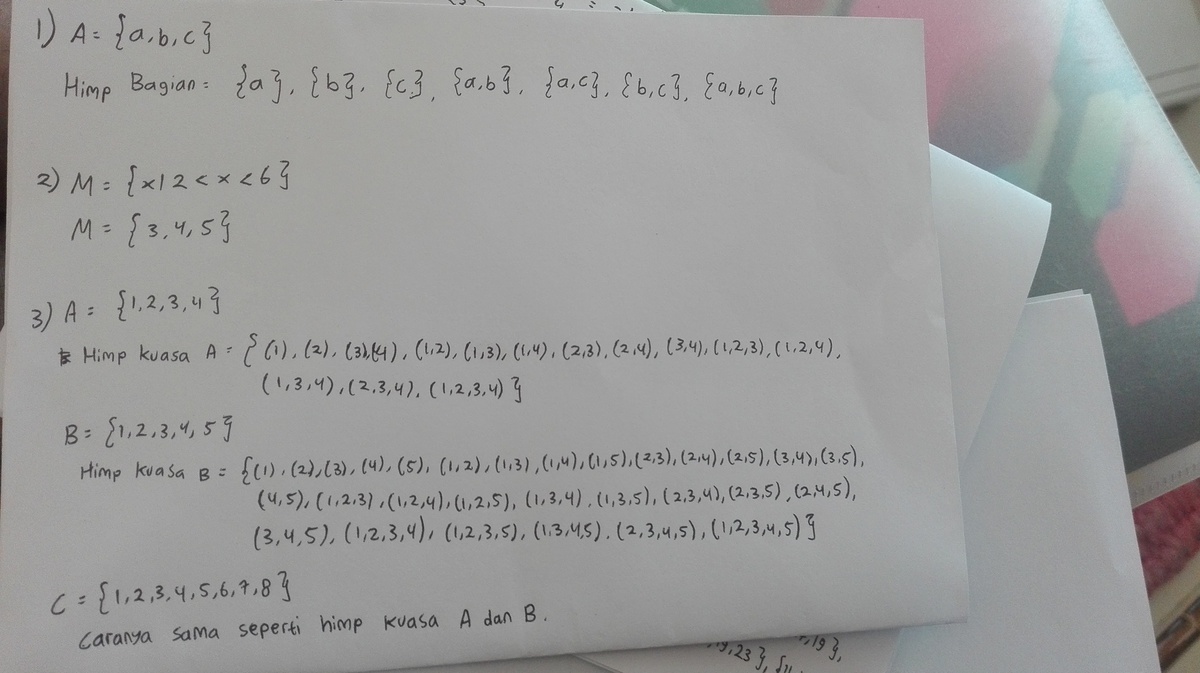 1) A = {a,b,c}
Himp Bagian = {a}, {b}, {c}, {a,b}, {a,c}, {b,c}, {a,b,c}
2) M = {x|2 < x < 6}
M = {3,4,5}
3) A = {1,2,3,4}
Himp kuasa A = { (1), (2), (3),(4), (1,2), (1,3), (1,4), (2,3), (2,4), (3,4), (1,2,3), (1,2,4),
(1,3,4), (2,3,4), (1,2,3,4) }
B = {1,2,3,4,5}
Himp kuasa B = {(1), (2), (3), (4), (5), (1,2), (1,3), (1,4), (1,5), (2,3), (2,4), (2,5), (3,4), (3,5),
(4,5), (1,2,3), (1,2,4), (1,2,5), (1,3,4), (1,3,5), (2,3,4), (2,3,5), (2,4,5),
(3,4,5), (1,2,3,4), (1,2,3,5), (1,3,4,5), (2,3,4,5), (1,2,3,4,5) }
C = {1,2,3,4,5,6,7,8}
Caranya sama seperti himp kuasa A dan B.